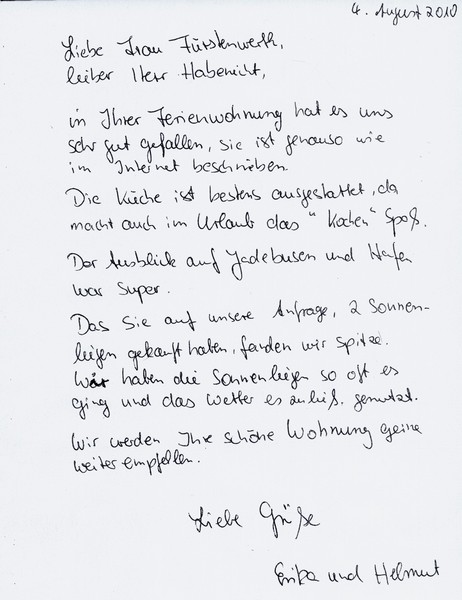 4. August 2010
Liebe Frau Fürstenwerth,
leiber Herr Habenicht,
in Ihrer Ferienwohnung hat es uns
sehr gut gefallen, sie ist genauso wie
im Internet beschrieben.
Die Küche ist bestens ausgestattet, da
macht auch im Urlaub das "Kochen" Spaß.
Der Ausblick auf Jadebusen und Hafen
war super.
Das Sie auf unsere Anfrage, 2 Sonnen-
liegen gekauft haben, fanden wir spitze.
Wir haben die Sonnenliegen so oft es
ging und das Wetter es zuließ. genutzt.
Wir werden Ihre schöne Wohnung gerne
weiter empfehlen.
Liebe Grüße
Erika und Helmut